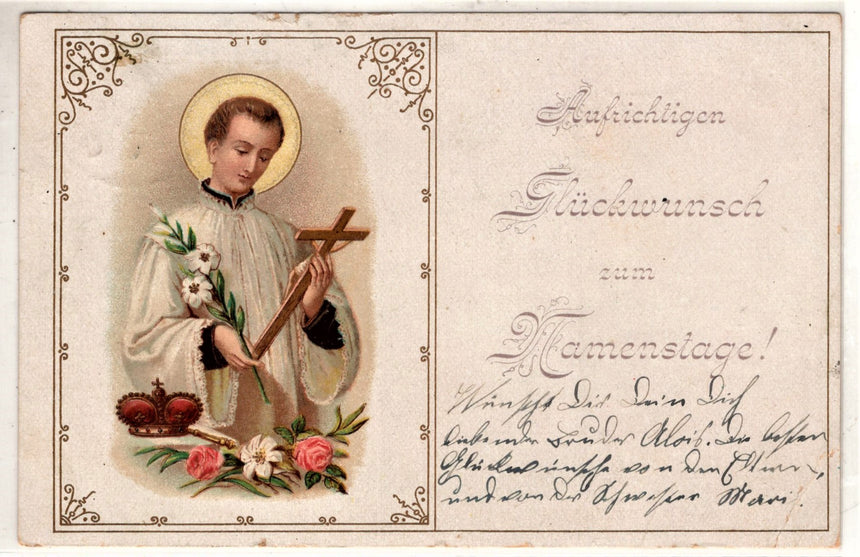 Aufrichtigen
Glückwunsch
zum
Namenstage!
Wünscht Dir Dein Dich
liebender Bruder Alois. Die besten
Glückwünsche von den Eltern,
und von der Schwester Marie.